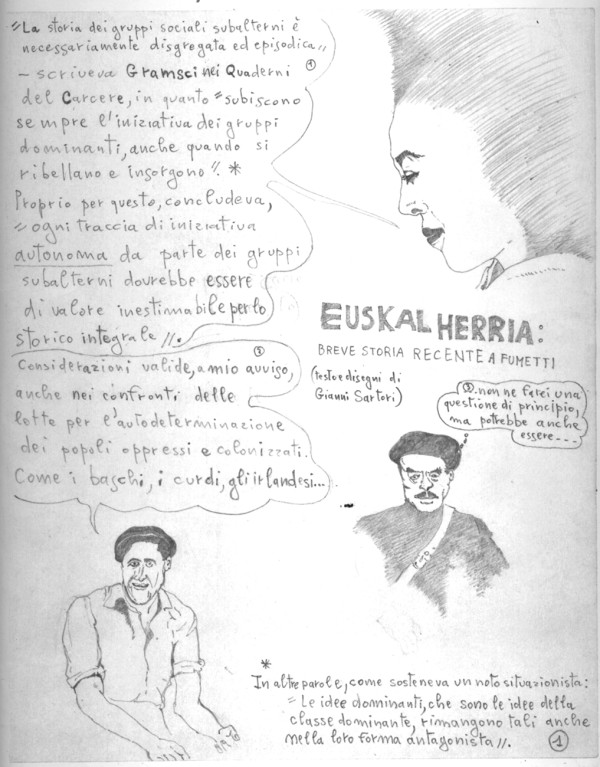 "La storia dei gruppi sociali subalterni è
necessariamente disgregata ed episodica"
①
– scriveva Gramsci nei Quaderni
del Carcere, in quanto "subiscono
sempre l'iniziativa dei gruppi
dominanti, anche quando si
ribellano e insorgono". *
Proprio per questo, concludeva,
"ogni traccia di iniziativa
autonoma da parte dei gruppi
subalterni dovrebbe essere
di valore inestimabile per lo
storico integrale".
②
Considerazioni valide, a mio avviso,
anche nei confronti delle
lotte per l'autodeterminazione
dei popoli oppressi e colonizzati.
Come i baschi, i curdi, gli irlandesi...
EUSKAL HERRIA:
BREVE STORIA RECENTE A FUMETTI
(testo e disegni di
Gianni Sartori)
③ .. non ne farei una
questione di principio,
ma potrebbe anche
essere...
*
In altre parole, come sosteneva un noto situazionista:
"Le idee dominanti, che sono le idee della
classe dominante, rimangono tali anche
nella loro forma antagonista".
①